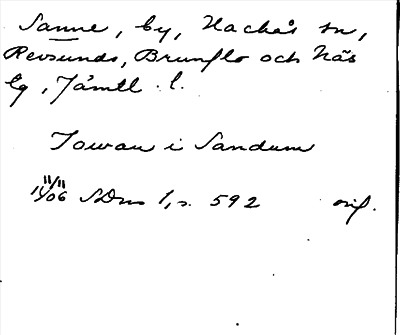 Sanne, by, Hackås sn,
Revsunds, Brunflo och Näs
tg, Jämtl. l.
Jowan i Sandum
11/11 1406 SDns 1, s. 592 orig.